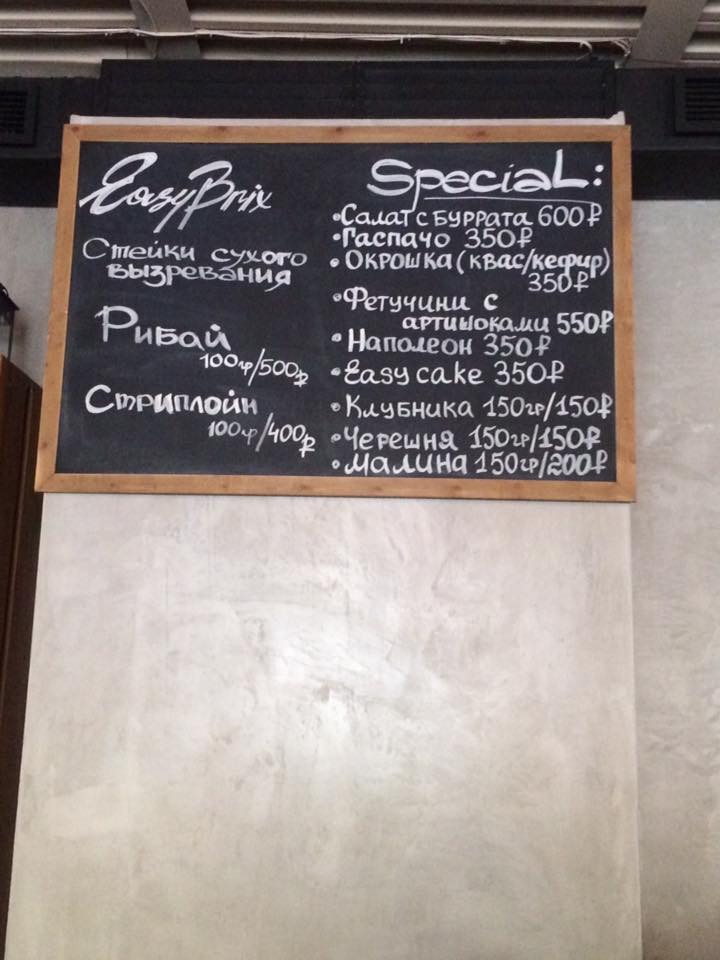 EasyBrix
Стейки сухого
вызревания
Рибай
100гр/500₽
Стриплойн
100гр/400₽
Special:
•Салат с буррата 600₽
•Гаспачо 350₽
•Окрошка (квас/кефир)
350₽
•Фетучини с
артишоками 550₽
•Наполеон 350₽
•Easy cake 350₽
•Клубника 150гр/150₽
•Черешня 150гр/150₽
•Малина 150гр/200₽